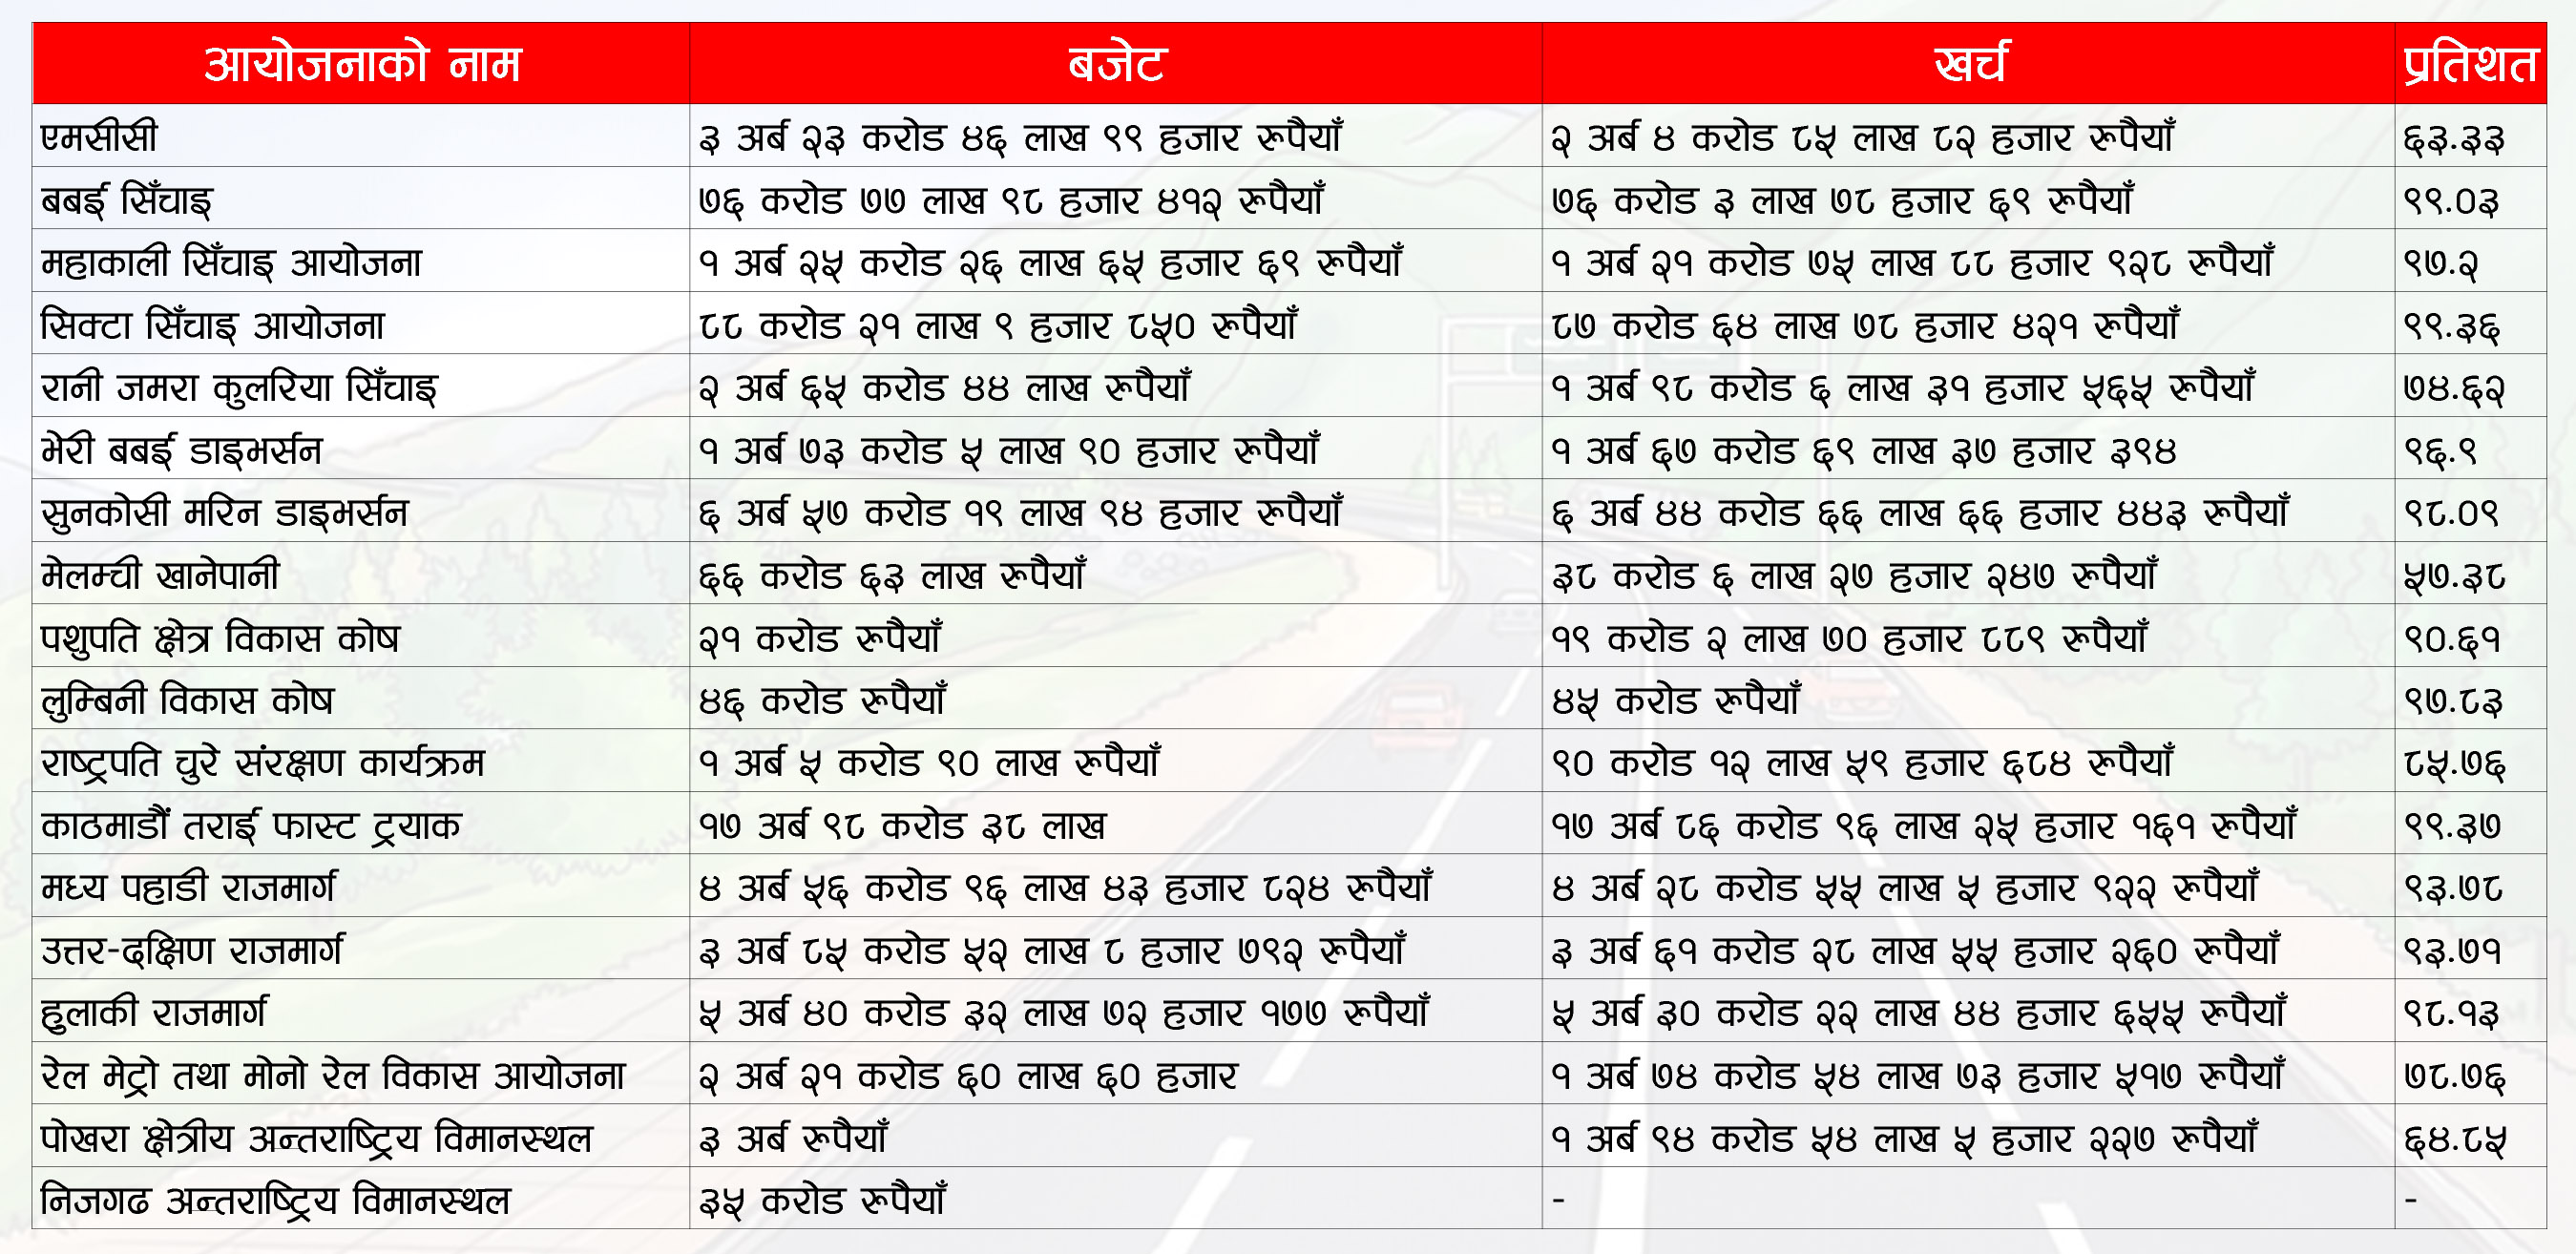 आयोजनाको नाम बजेट खर्च प्रतिशत
एमसीसी ३ अर्ब २३ करोड ४६ लाख ९९ हजार रूपैयाँ २ अर्ब ४ करोड ८५ लाख ८२ हजार रूपैयाँ ६३.३३
बबई सिँचाइ ७६ करोड ७७ लाख ९८ हजार ४१२ रूपैयाँ ७६ करोड ३ लाख ७८ हजार ६९ रूपैयाँ ९९.०३
महाकाली सिँचाइ आयोजना १ अर्ब २५ करोड २६ लाख ६५ हजार ६९ रूपैयाँ १ अर्ब २१ करोड ७५ लाख ८८ हजार ९२८ रूपैयाँ ९७.२
सिक्टा सिँचाइ आयोजना ८८ करोड २१ लाख ९ हजार ८५० रूपैयाँ ८७ करोड ६४ लाख ७८ हजार ४२१ रूपैयाँ ९९.३६
रानी जमरा कुलरिया सिँचाइ २ अर्ब ६५ करोड ४४ लाख रूपैयाँ १ अर्ब ९८ करोड ६ लाख ३१ हजार ५६५ रूपैयाँ ७४.६२
भेरी बबई डाइभर्सन १ अर्ब ७३ करोड ५ लाख ९० हजार रूपैयाँ १ अर्ब ६७ करोड ६९ लाख ३७ हजार ३९४ ९६.९
सुनकोसी मरिन डाइभर्सन ६ अर्ब ५७ करोड १९ लाख ९४ हजार रूपैयाँ ६ अर्ब ४४ करोड ६६ लाख ६६ हजार ४४३ रूपैयाँ ९८.०९
मेलम्ची खानेपानी ६६ करोड ६३ लाख रूपैयाँ ३८ करोड ६ लाख २७ हजार २४७ रूपैयाँ ५७.३८
पशुपति क्षेत्र विकास कोष २१ करोड रूपैयाँ १९ करोड २ लाख ७० हजार ८८९ रूपैयाँ ९०.६१
लुम्बिनी विकास कोष ४६ करोड रूपैयाँ ४५ करोड रूपैयाँ ९७.८३
राष्ट्रपति चुरे संरक्षण कार्यक्रम १ अर्ब ५ करोड ९० लाख रूपैयाँ ९० करोड १२ लाख ५९ हजार ६८४ रूपैयाँ ८५.७६
काठमाडौं तराई फास्ट ट्रयाक १७ अर्ब ९८ करोड ३८ लाख १७ अर्ब ८६ करोड ९६ लाख २५ हजार १६१ रूपैयाँ ९९.३७
मध्य पहाडी राजमार्ग ४ अर्ब ५६ करोड ९६ लाख ४३ हजार ८२४ रूपैयाँ ४ अर्ब २८ करोड ५५ लाख ५ हजार ९२२ रूपैयाँ ९३.७८
उत्तर-दक्षिण राजमार्ग ३ अर्ब ८५ करोड ५२ लाख ८ हजार ७९२ रूपैयाँ ३ अर्ब ६१ करोड २८ लाख ५५ हजार २६० रूपैयाँ ९३.७१
हुलाकी राजमार्ग ५ अर्ब ४० करोड ३२ लाख ७२ हजार १७७ रूपैयाँ ५ अर्ब ३० करोड २२ लाख ४४ हजार ६५५ रूपैयाँ ९८.१३
रेल मेट्रो तथा मोनो रेल विकास आयोजना २ अर्ब २१ करोड ६० लाख ६० हजार १ अर्ब ७४ करोड ५४ लाख ७३ हजार ५१७ रूपैयाँ ७८.७६
पोखरा क्षेत्रीय अन्तराष्ट्रिय विमानस्थल ३ अर्ब रूपैयाँ १ अर्ब ९४ करोड ५४ लाख ५ हजार २२७ रूपैयाँ ६४.८५
निजगढ अन्तराष्ट्रिय विमानस्थल ३५ करोड रूपैयाँ - -